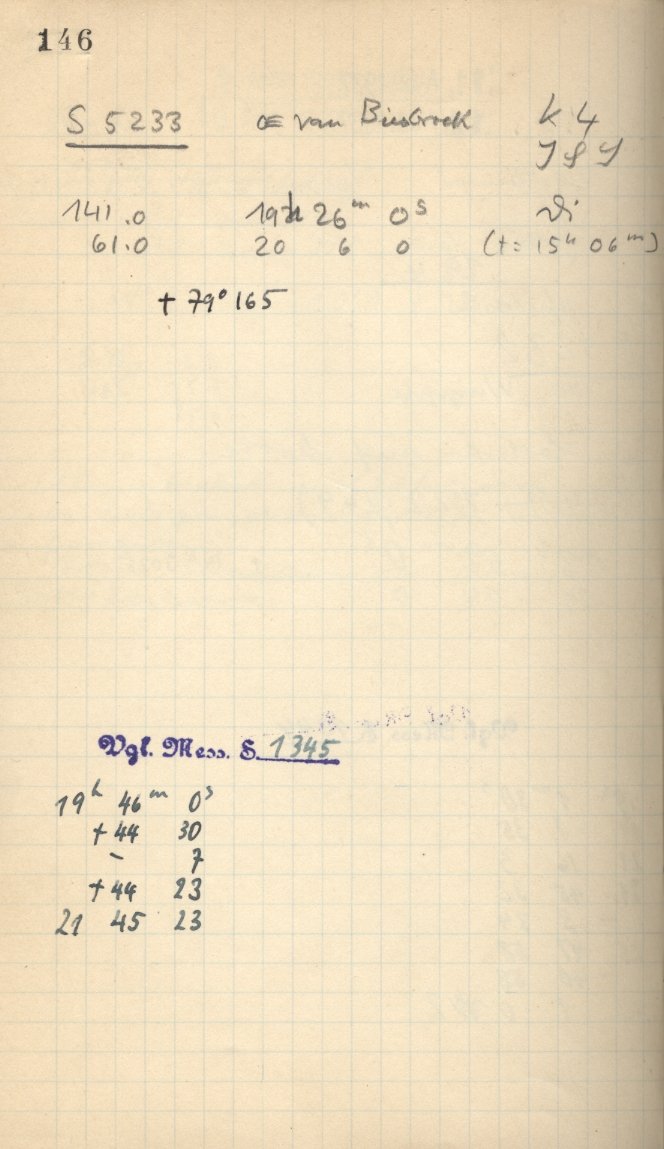 146
S 5233 van Biesbroek K 4
141.0 19h 26m 0s
61.0 20 6 0 (t= 15h 06m)
+ 79° 165
Vgl. Mess. S. 1345
19h 46m 0s
+ 44 30
- 7
+ 44 23
21 45 23